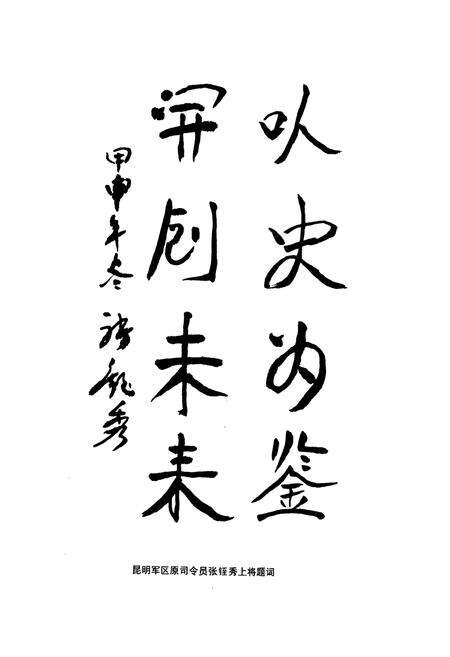 以史为鉴
开创未来
甲申年冬 张铚秀
昆明军区原司令员张铚秀上将题词